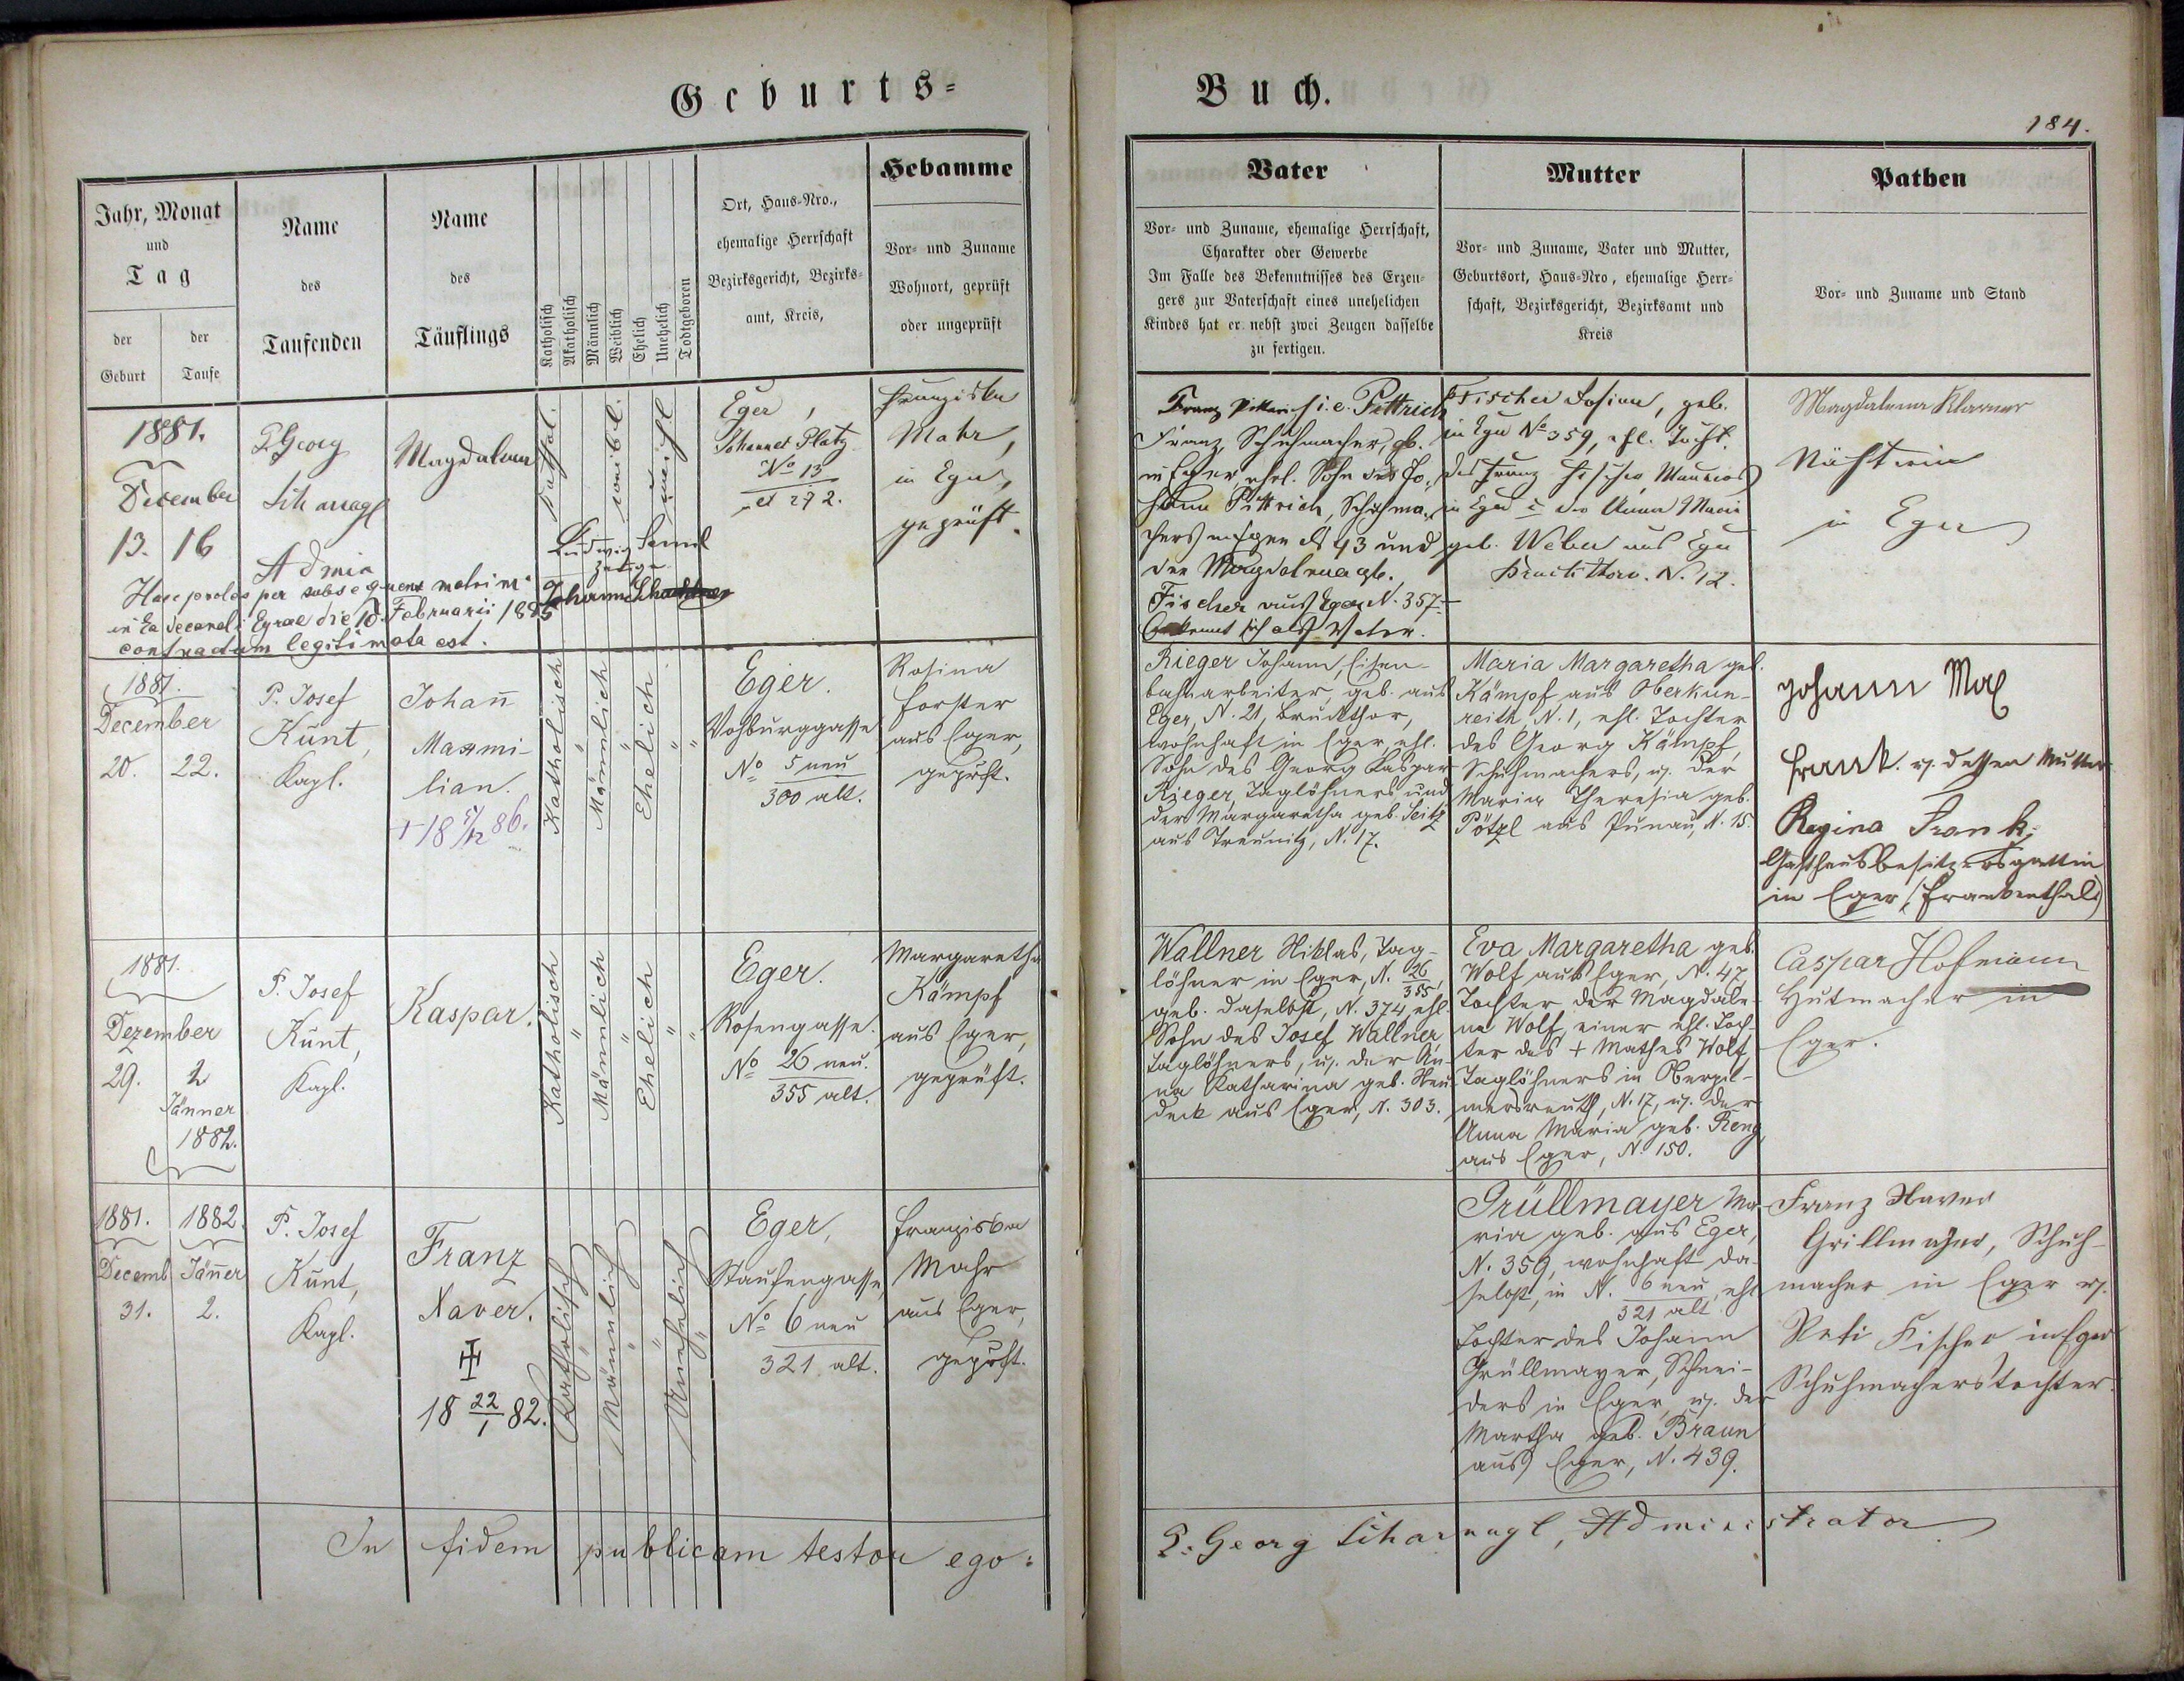 Geburts-
Buch.
184.
Jahr, Monat
und
Tag
der
Geburt
der
Taufe
Name
des
Taufenden
Name
des
Täuflings
Katholisch
Akatholisch
Männlich
Weiblich
Ehelich
Unehelich
Todtgeboren
Ort, Haus-Nro.,
ehemalige Herrschaft
Bezirksgericht, Bezirks-
amt, Kreis,
Hebamme
Vor- und Zuname
Wohnort, geprüft
oder ungeprüft
Vater
Vor- und Zuname, ehemalige Herrschaft,
Charakter oder Gewerbe
Im Falle des Bekenntnisses des Erzeu-
gers zur Vaterschaft eines unehelichen
Kindes hat er nebst zwei Zeugen dasselbe
zu fertigen.
Mutter
Vor- und Zuname, Vater und Mutter,
Geburtsort, Haus-Nro, ehemalige Herr-
schaft, Bezirksgericht, Bezirksamt und
Kreis
Pathen
Vor- und Zuname und Stand
1881.
December
13. 16
P. Georg
Scharnagl
Admin
Magdalena
Kathol.
weibl.
unehl
Eger,
Johannes Platz
No 13
et 272.
Franziska
Mahr,
in Eger,
geprüft.
Haec proles per subsequens matrim
in Ea decanali Egrae die 10. Februarii 1885
contractum legitimata est.
Zeuge
Franz Pittrich i. e. Pittrich
Franz, Schuhmacher, gb.
in Eger, ehel. Sohn des Jo-
hann Pittrich, Schuhma-
chers in Eger No 43 und
der Magdalena gb.
Fischer aus Eger N. 357
bekennt sich als Vater.
Fischer Rosina, geb.
in Eger No 359, ehl. Tocht.
des Franz Fischer, Maurers
in Eger u. der Anna Maria
geb. Weber aus Eger
Bruckthor. N. 12.
Magdalena Klarner
Näherin
in Eger
1881.
December
20. 22.
P. Josef
Kunt,
Kapl.
Johann
Maxmi-
lian.
+ 18 5/12 86.
Katholisch
Männlich
Ehelich
Eger.
Vohburggasse
No 5 neu
300 alt.
Rosina
Forster
aus Eger,
geprft.
Rieger Johann, Eisen-
bahnarbeiter, geb. aus
Eger, N. 21, Bruckthor,
wohnhaft in Eger, ehl.
Sohn des Georg Kaspar
Rieger, Taglöhners und
der Margaretha geb. Seitz
aus Treunitz, N. 17.
Maria Margaretha geb.
Kämpf aus Oberkun-
reith, N. 1, ehl. Tochter
des Georg Kämpf,
Schuhmachers, u. der
Maria Theresia geb.
Pötzl aus Punau, N. 15.
Johann Max
Frank. u. dessen Mutter
Regina Frank,
Gasthausbesitzersgattin
in Eger (Frankenthal)
1881.
Dezember
29. 2
Jänner
1882.
P. Josef
Kunt,
Kapl.
Kaspar.
Katholisch
Männlich
Ehelich
Eger.
Rosengasse.
No 26 neu.
355 alt.
Margaretha
Kämpf
aus Eger,
geprüft.
Wallner Niklas, Tag-
löhner in Eger, N. 26/355,
geb. daselbst, N. 374, ehl.
Sohn des Josef Wallner,
Taglöhners, u. der An-
na Katharina geb. Neu-
deck aus Eger, N. 303.
Eva Margaretha geb.
Wolf aus Eger, N. 47,
Tochter der Magdale-
na Wolf, einer ehl. Toch-
ter des + Mathes Wolf,
Taglöhners in Oberpil-
mersreuth, N. 17, u. der
Anna Maria geb. Reng
aus Eger, N. 150.
Caspar Hofmann
Hutmacher in
Eger.
1881. 1882.
Decemb. Jänner
31. 2.
P. Josef
Kunt,
Kapl.
Franz
Xaver.
18 22/1 82.
Katholisch
Männlich
Unehelich
Eger,
Staufengasse,
No 6 neu
321 alt.
Franziska
Mahr
aus Eger,
geprft.
Grüllmayer Ma-
ria geb. aus Eger,
N. 359, wohnhaft da-
selbst, in N. 6 neu, ehl
321 alt
Tochter des Johann
Grüllmayer, Schnei-
ders in Eger, u. der
Martha geb. Braun
aus Eger, N. 439.
Franz Xaver
Grillmayer, Schuh-
macher in Eger u.
Resi Fischer in Eger
Schuhmacherstochter.
In fidem publicam testor ego:
P. Georg Scharnagl, Administrator